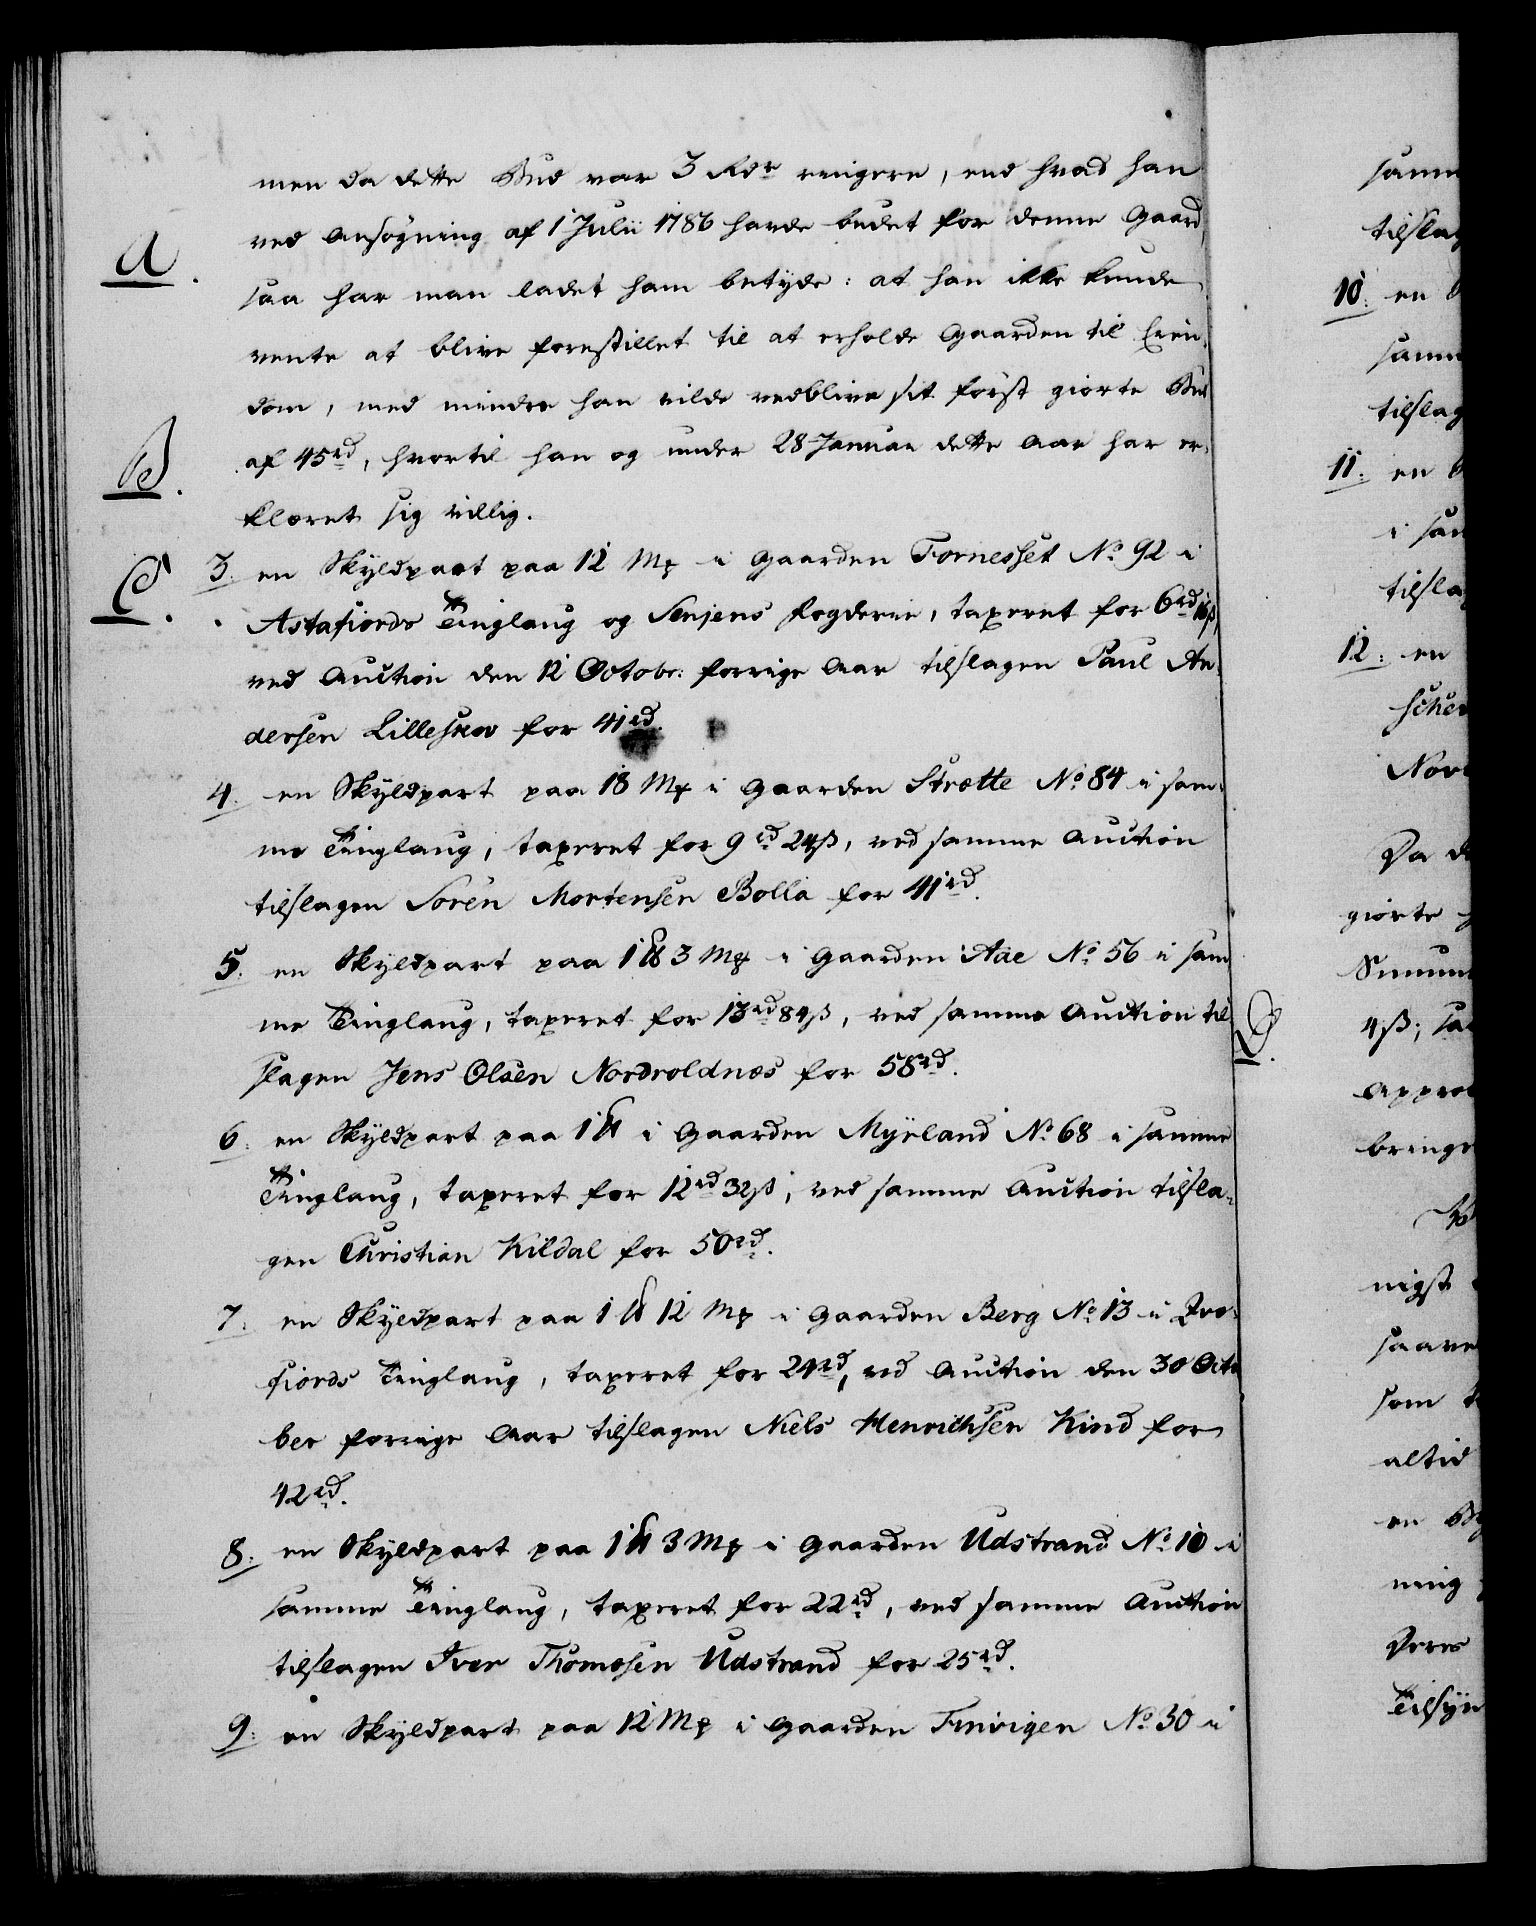 men da dette Bud var 3 Rdr ringere, end hvad han
A. ved Ansøgning af 1 Julii 1786 havde budet for denne Gaard,
saa har man ladet ham betyde: at han ikke kunde
vente at blive forestillet til at erholde Gaarden til Eien-
dom, med mindre han vilde vedblive sit først giorte Bud
B. af 45rd, hvortil han og under 28 Januar dette Aar har er-
klæret sig villig.
C. 3. en Skyldpart paa 12 Mp i Gaarden Fornesset No 92 i
Astafiords Tinglaug og Senjens Fogderie, taxeret for 6rd 16ß,
ved Auction den 12 Octobr: forrige Aar tilslagen Paul An-
dersen Lilleskov for 41rd.
4. en Skyldpart paa 18 Mp i Gaarden Strætte No 84 i sam-
me Tinglaug, taxeret for 9rd 24ß, ved samme Auction
tilslagen Sören Mortensen Bolla for 41rd.
5. en Skyldpart paa 1 ℔ 3 Mp i Gaarden Aae No 56 i sam
me Tinglaug, taxeret for 13rd 84ß, ved samme Auction til
slagen Jens Olsen Nordroldnæs for 58rd.
6. en Skyldpart paa 1 ℔ i Gaarden Myrland No 68 i samme
Tinglaug, taxeret for 12rd 32ß, ved samme Auction tilsla-
gen Christian Kildal for 50rd.
7. en Skyldpart paa 1 ℔ 12 Mp i Gaarden Berg No 13 i
fiords Tinglaug, taxeret for 24rd, ved Auction den 30 Octo
ber forrige Aar tilslagen Niels Henrichsen Kind for
42rd.
8. en Skyldpart paa 1 ℔ 3 Mp i Gaarden Udstrand No 10 i
samme Tinglaug, taxeret for 22rd, ved samme Auction
tilslagen Iver Thomasen Udstrand for 25rd.
9. en Skyldpart paa 12 Mp i Gaarden Finvigen No 30 i
samm
tilslag
10. en
samm
tilslag
11. en
i sam
tilslag
12. en
Nor
Da de
giorte
Summ
D. 4ß; saa
Approb
bringe
nigst
saave
som
altid
en
ning
Deres
Tilsyn